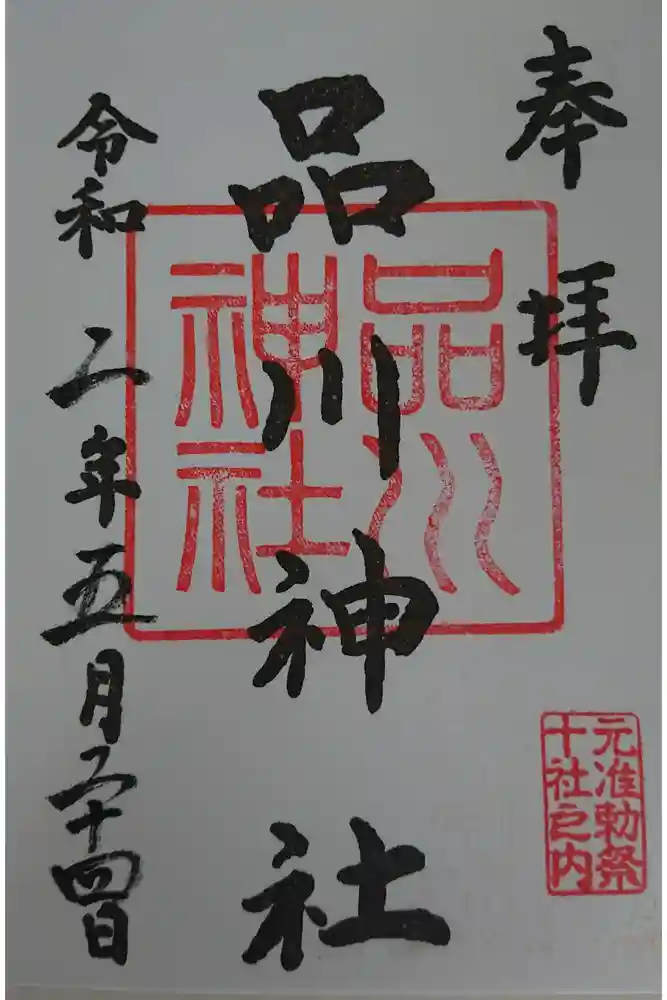 奉拝
品川神社
品川
神社
元准勅祭
十社之内
令和二年五月二十四日